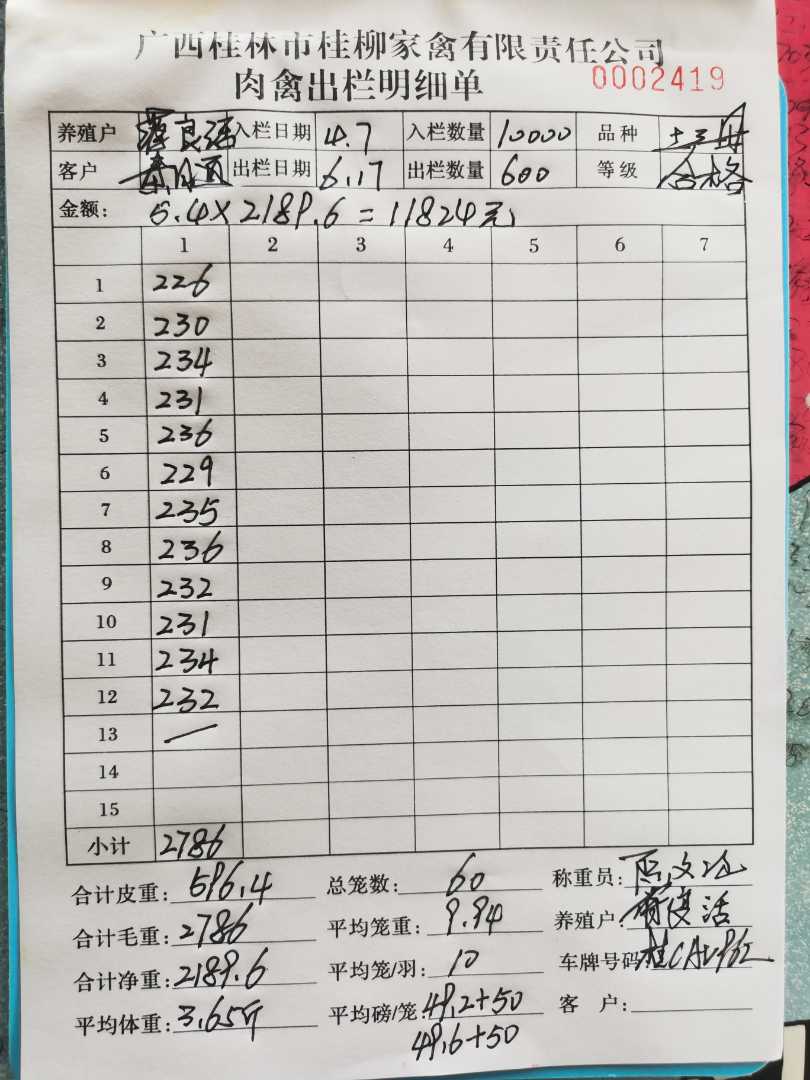 广西桂林市桂柳家禽有限责任公司
肉禽出栏明细单 0002419
养殖户 良活 入栏日期 4.7 入栏数量 10000 品种
客户 出栏日期 6.17 出栏数量 600 等级 合格
金额: 5.4×2189.6=11824元
1 2 3 4 5 6 7
1 226
2 230
3 234
4 231
5 236
6 229
7 235
8 236
9 232
10 231
11 234
12 232
13 —
14
15
小计 2786
合计皮重: 596.4 总笼数: 60 称重员: 文
合计毛重: 2786 平均笼重: 9.94 养殖户: 良活
合计净重: 2189.6 平均笼/羽: 10 车牌号码 桂CA
平均体重: 3.65斤 平均磅/笼: 49.2+50 客 户:
49.6+50